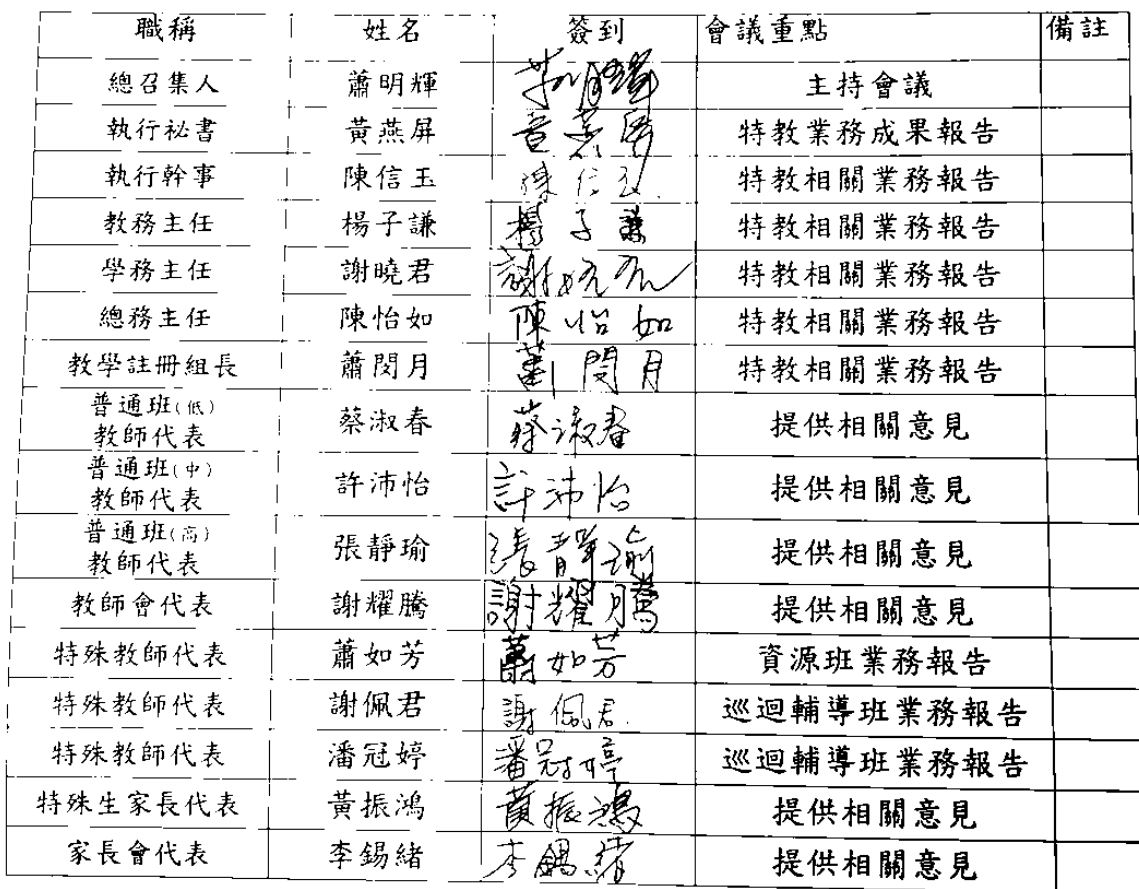 職稱 姓名 簽到 會議重點 備註
總召集人 蕭明輝 主持會議
執行祕書 黃燕屏 特教業務成果報告
執行幹事 陳信玉 陳信玉 特教相關業務報告
教務主任 楊子謙 楊子謙 特教相關業務報告
學務主任 謝曉君 謝曉君 特教相關業務報告
總務主任 陳怡如 陳怡如 特教相關業務報告
教學註冊組長 蕭閔月 蕭閔月 特教相關業務報告
普通班(低)
教師代表 蔡淑春 蔡淑春 提供相關意見
普通班(中)
教師代表 許沛怡 許沛怡 提供相關意見
普通班(高)
教師代表 張靜瑜 張靜瑜 提供相關意見
教師會代表 謝耀騰 謝耀騰 提供相關意見
特殊教師代表 蕭如芳 蕭如芳 資源班業務報告
特殊教師代表 謝佩君 謝佩君 巡迴輔導班業務報告
特殊教師代表 潘冠婷 潘冠婷 巡迴輔導班業務報告
特殊生家長代表 黃振鴻 黃振鴻 提供相關意見
家長會代表 李錫緒 李錫緒 提供相關意見